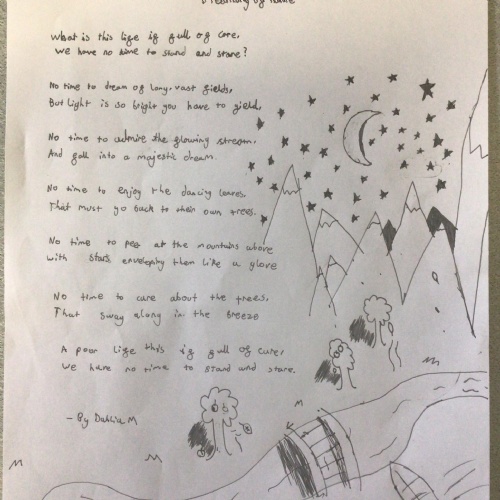 Dreaming of Nature
What is this life if full of care,
We have no time to stand and stare?
No time to dream of long, vast fields,
But light is so bright you have to yield,
No time to admire the flowing stream,
And fall into a majestic dream.
No time to enjoy the dancing leaves,
That must go back to their own trees.
No time to peer at the mountains above
With stars enveloping them like a glove
No time to care about the trees,
That sway along in the breeze
A poor life this if full of care,
We have no time to stand and stare.
- By Dahlia M